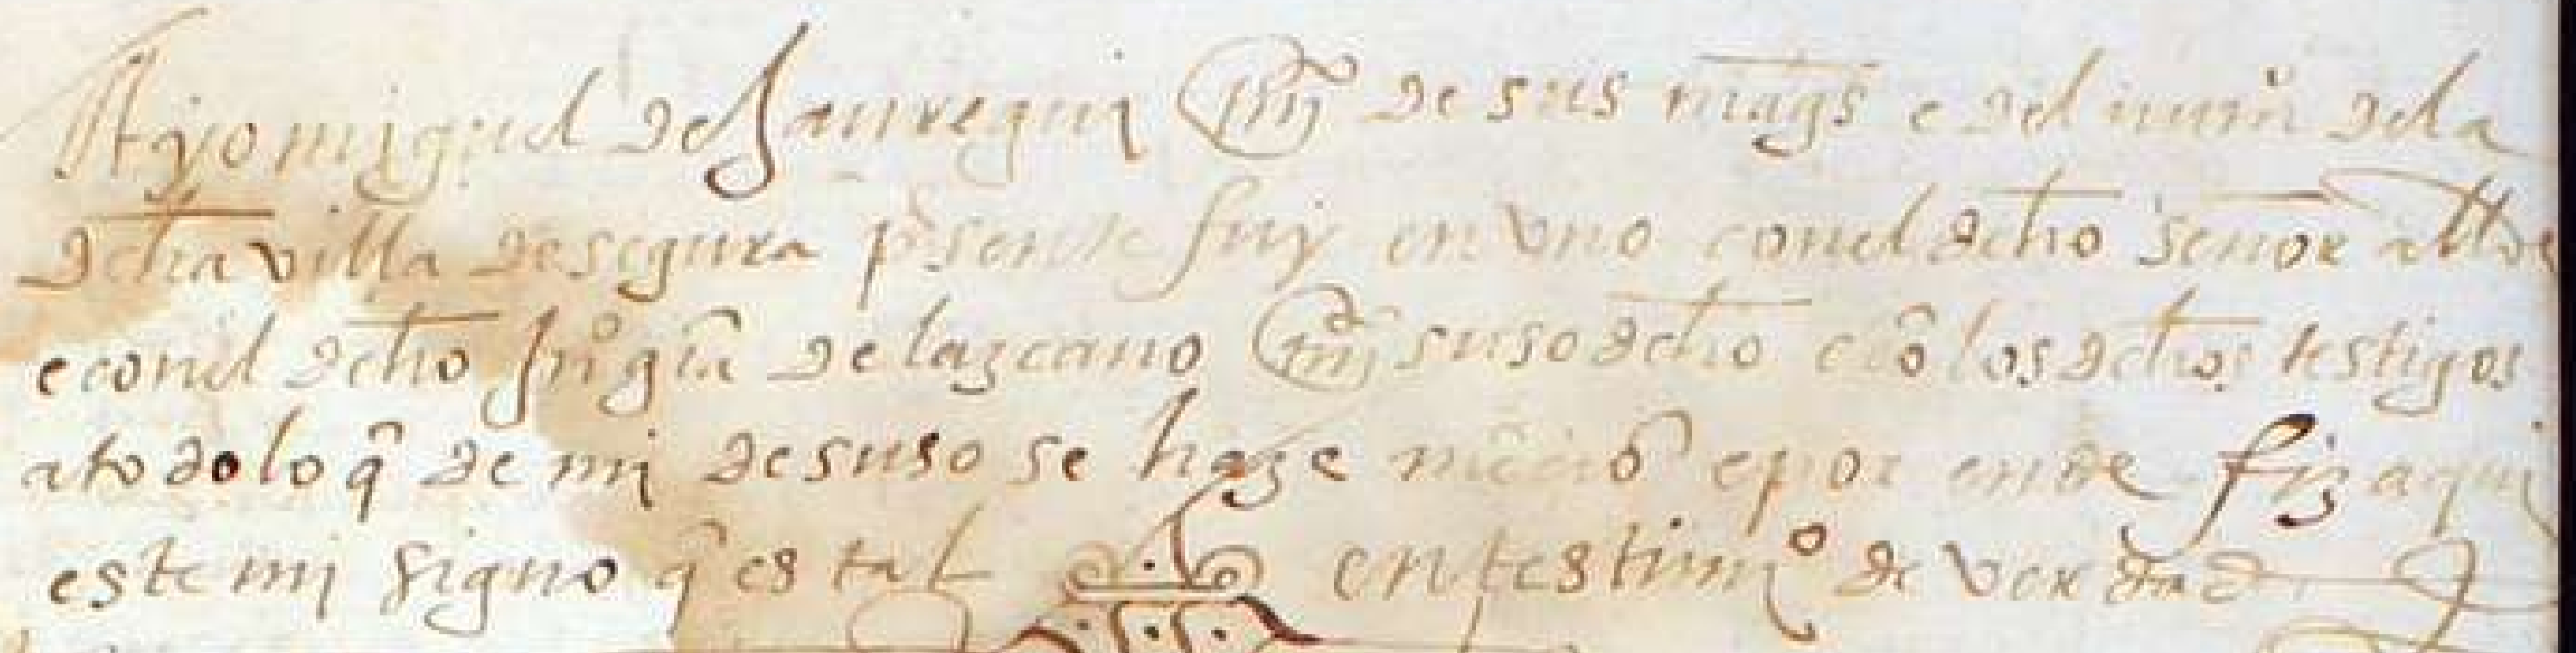 E yo migel de Jauregui esno de sus mags e del numo dela
dcha villa de segura presente fuy en uno conel dcho senor allde
e conel dcho Juo gra de lazcano esno suso dcho e cō los dchos testigos
a todo lo q̃ de mi de suso se haze mēciō e por ende fiz aqui
este mi signo q̃ es tal en testimo de verdad